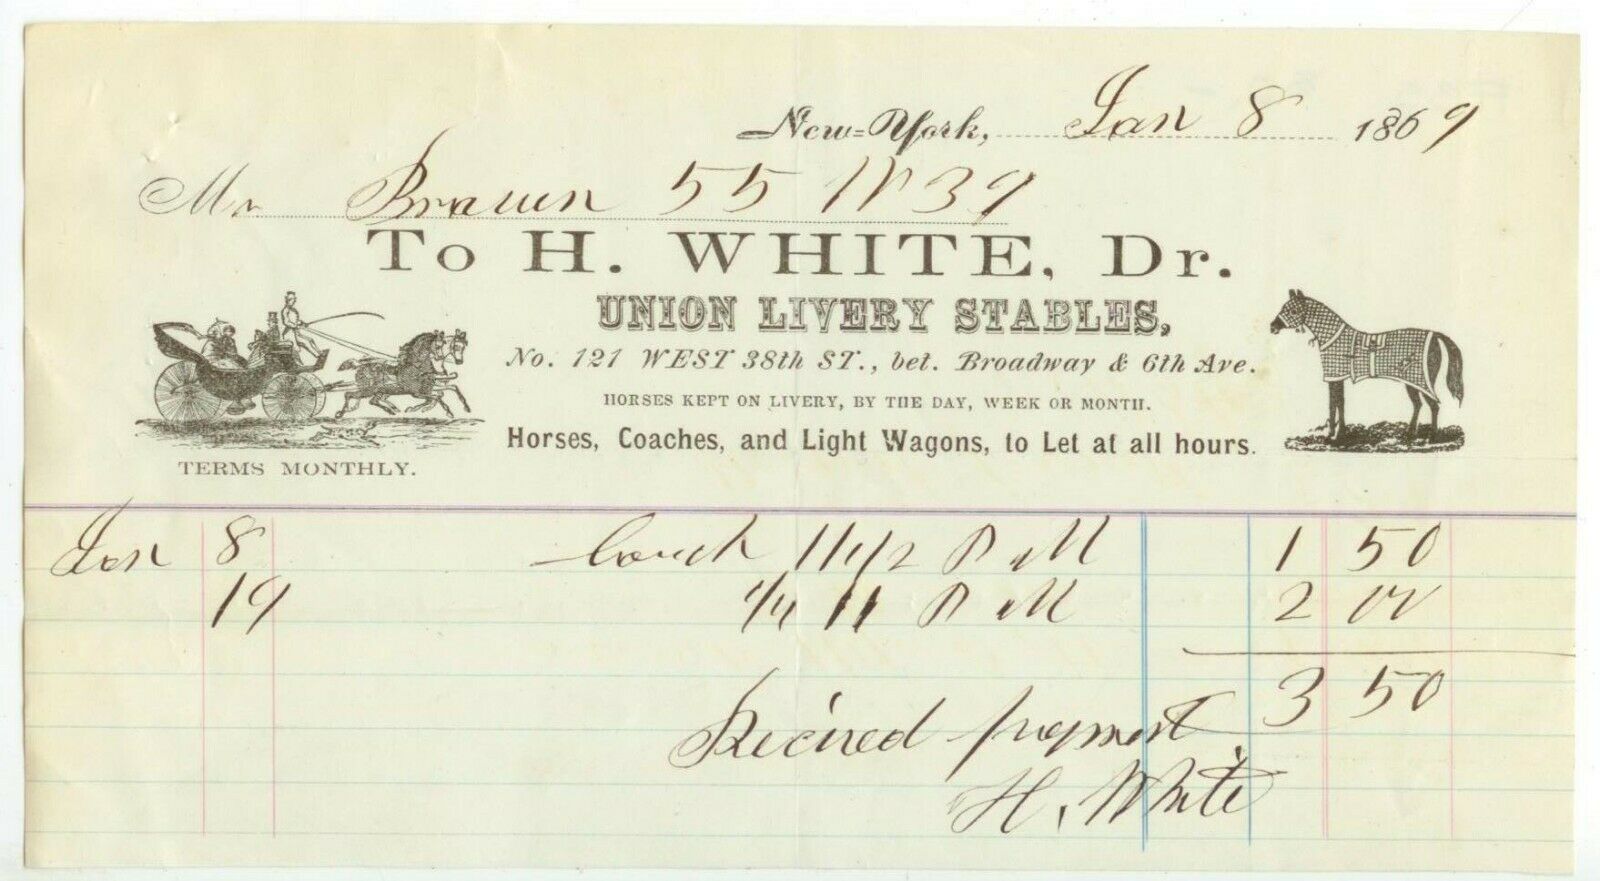 New-York, Jan 8 1869
Mr Brown 55 W 39
To H. WHITE, Dr.
UNION LIVERY STABLES,
No. 121 WEST 38th ST., bet. Broadway & 6th Ave.
HORSES KEPT ON LIVERY, BY THE DAY, WEEK OR MONTH.
Horses, Coaches, and Light Wagons, to Let at all hours.
TERMS MONTHLY.
Jan 8 Coach 11 1/2 P M 1 50
19 11 P M 2 00
3 50
Recived payment
H. White